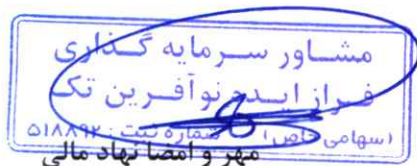 مشاور سرمایه گذاری
فراز ایده نوآفرین تک
(سهامی خاص) شماره ثبت: ۵۱۸۸۹۲
مهر و امضا نهاد مالی